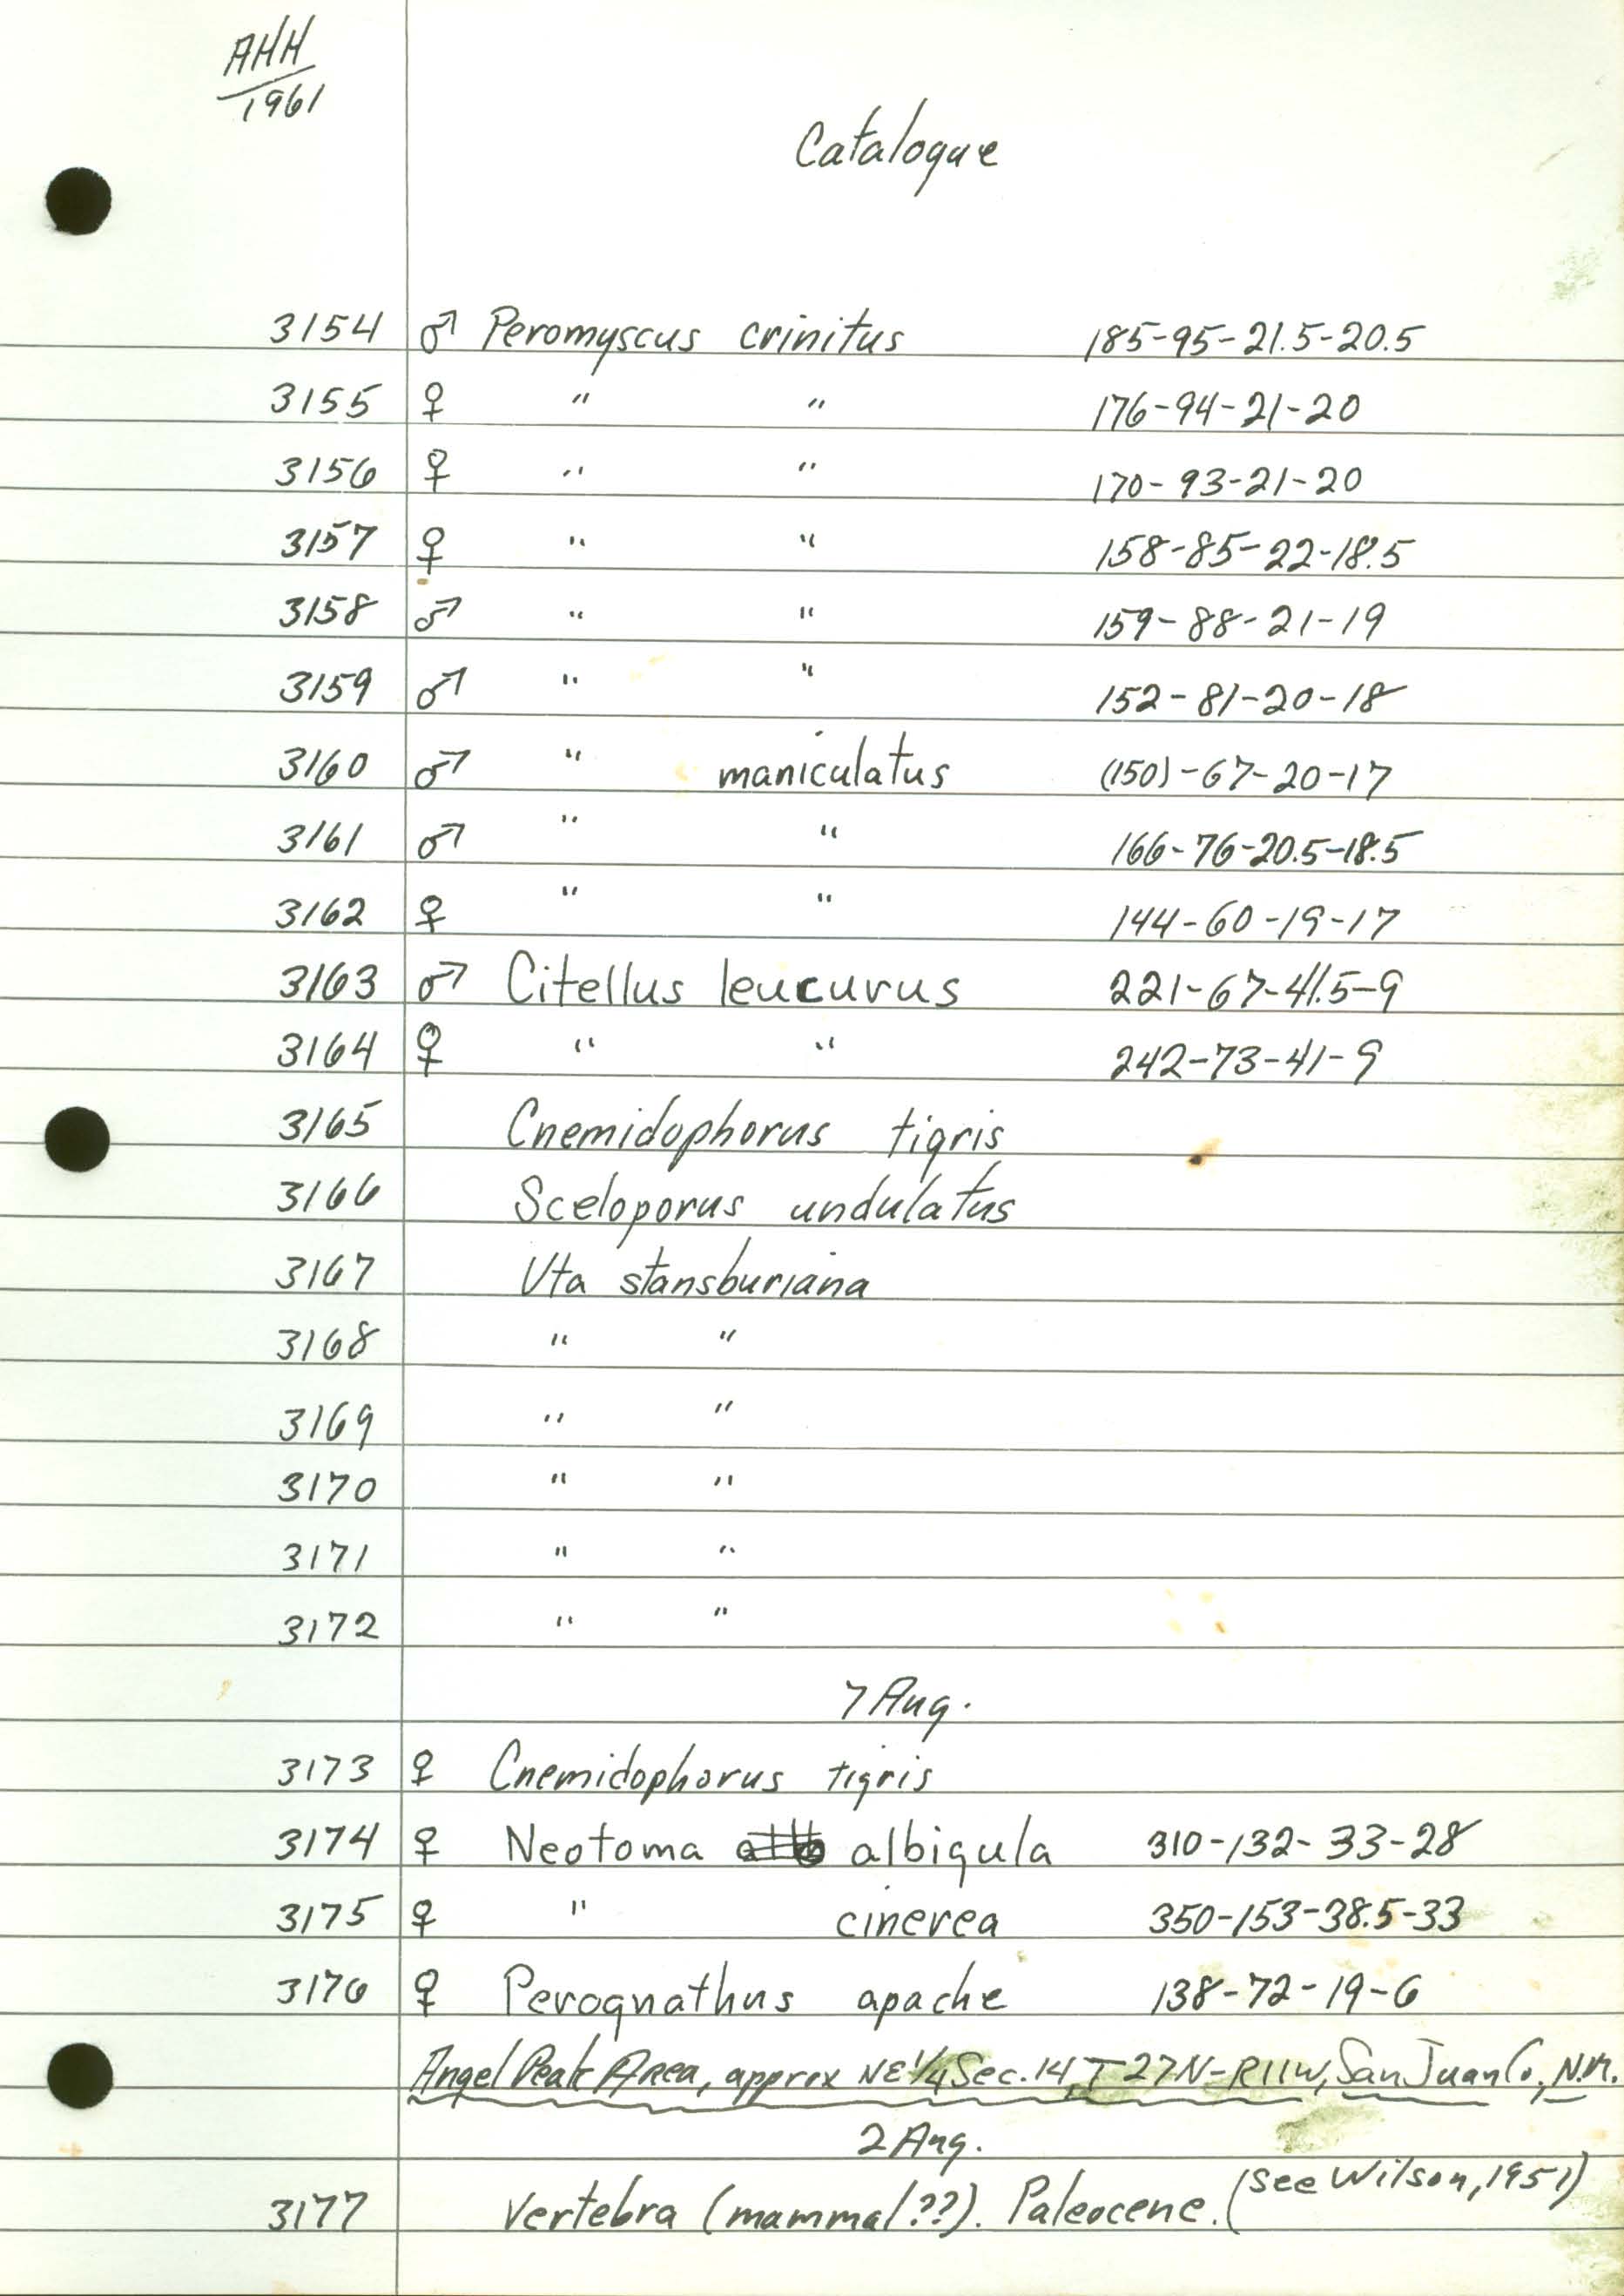 AHH
1961
Catalogue
3154 ♂ Peromyscus crinitus 185-95-21.5-20.5
3155 ♀ " " 176-94-21-20
3156 ♀ " " 170-93-21-20
3157 ♀ " " 158-85-22-18.5
3158 ♂ " " 159-88-21-19
3159 ♂ " " 152-81-20-18
3160 ♂ " maniculatus (150)-67-20-17
3161 ♂ " " 166-76-20.5-18.5
3162 ♀ " " 144-60-19-17
3163 ♂ Citellus leucurus 221-67-41.5-9
3164 ♀ " " 242-73-41-9
3165 Cnemidophorus tigris
3166 Sceloporus undulatus
3167 Uta stansburiana
3168 " "
3169 " "
3170 " "
3171 " "
3172 " "
7 Aug.
3173 ♀ Cnemidophorus tigris
3174 ♀ Neotoma albigula 310-132-33-28
3175 ♀ " cinerea 350-153-38.5-33
3176 ♀ Perognathus apache 138-72-19-6
Angel Peak Area, approx NE 1/4 Sec. 14, T 27N-R11W, San Juan Co., N.M.
2 Aug.
3177 Vertebra (mammal??). Paleocene. (See Wilson, 1951)